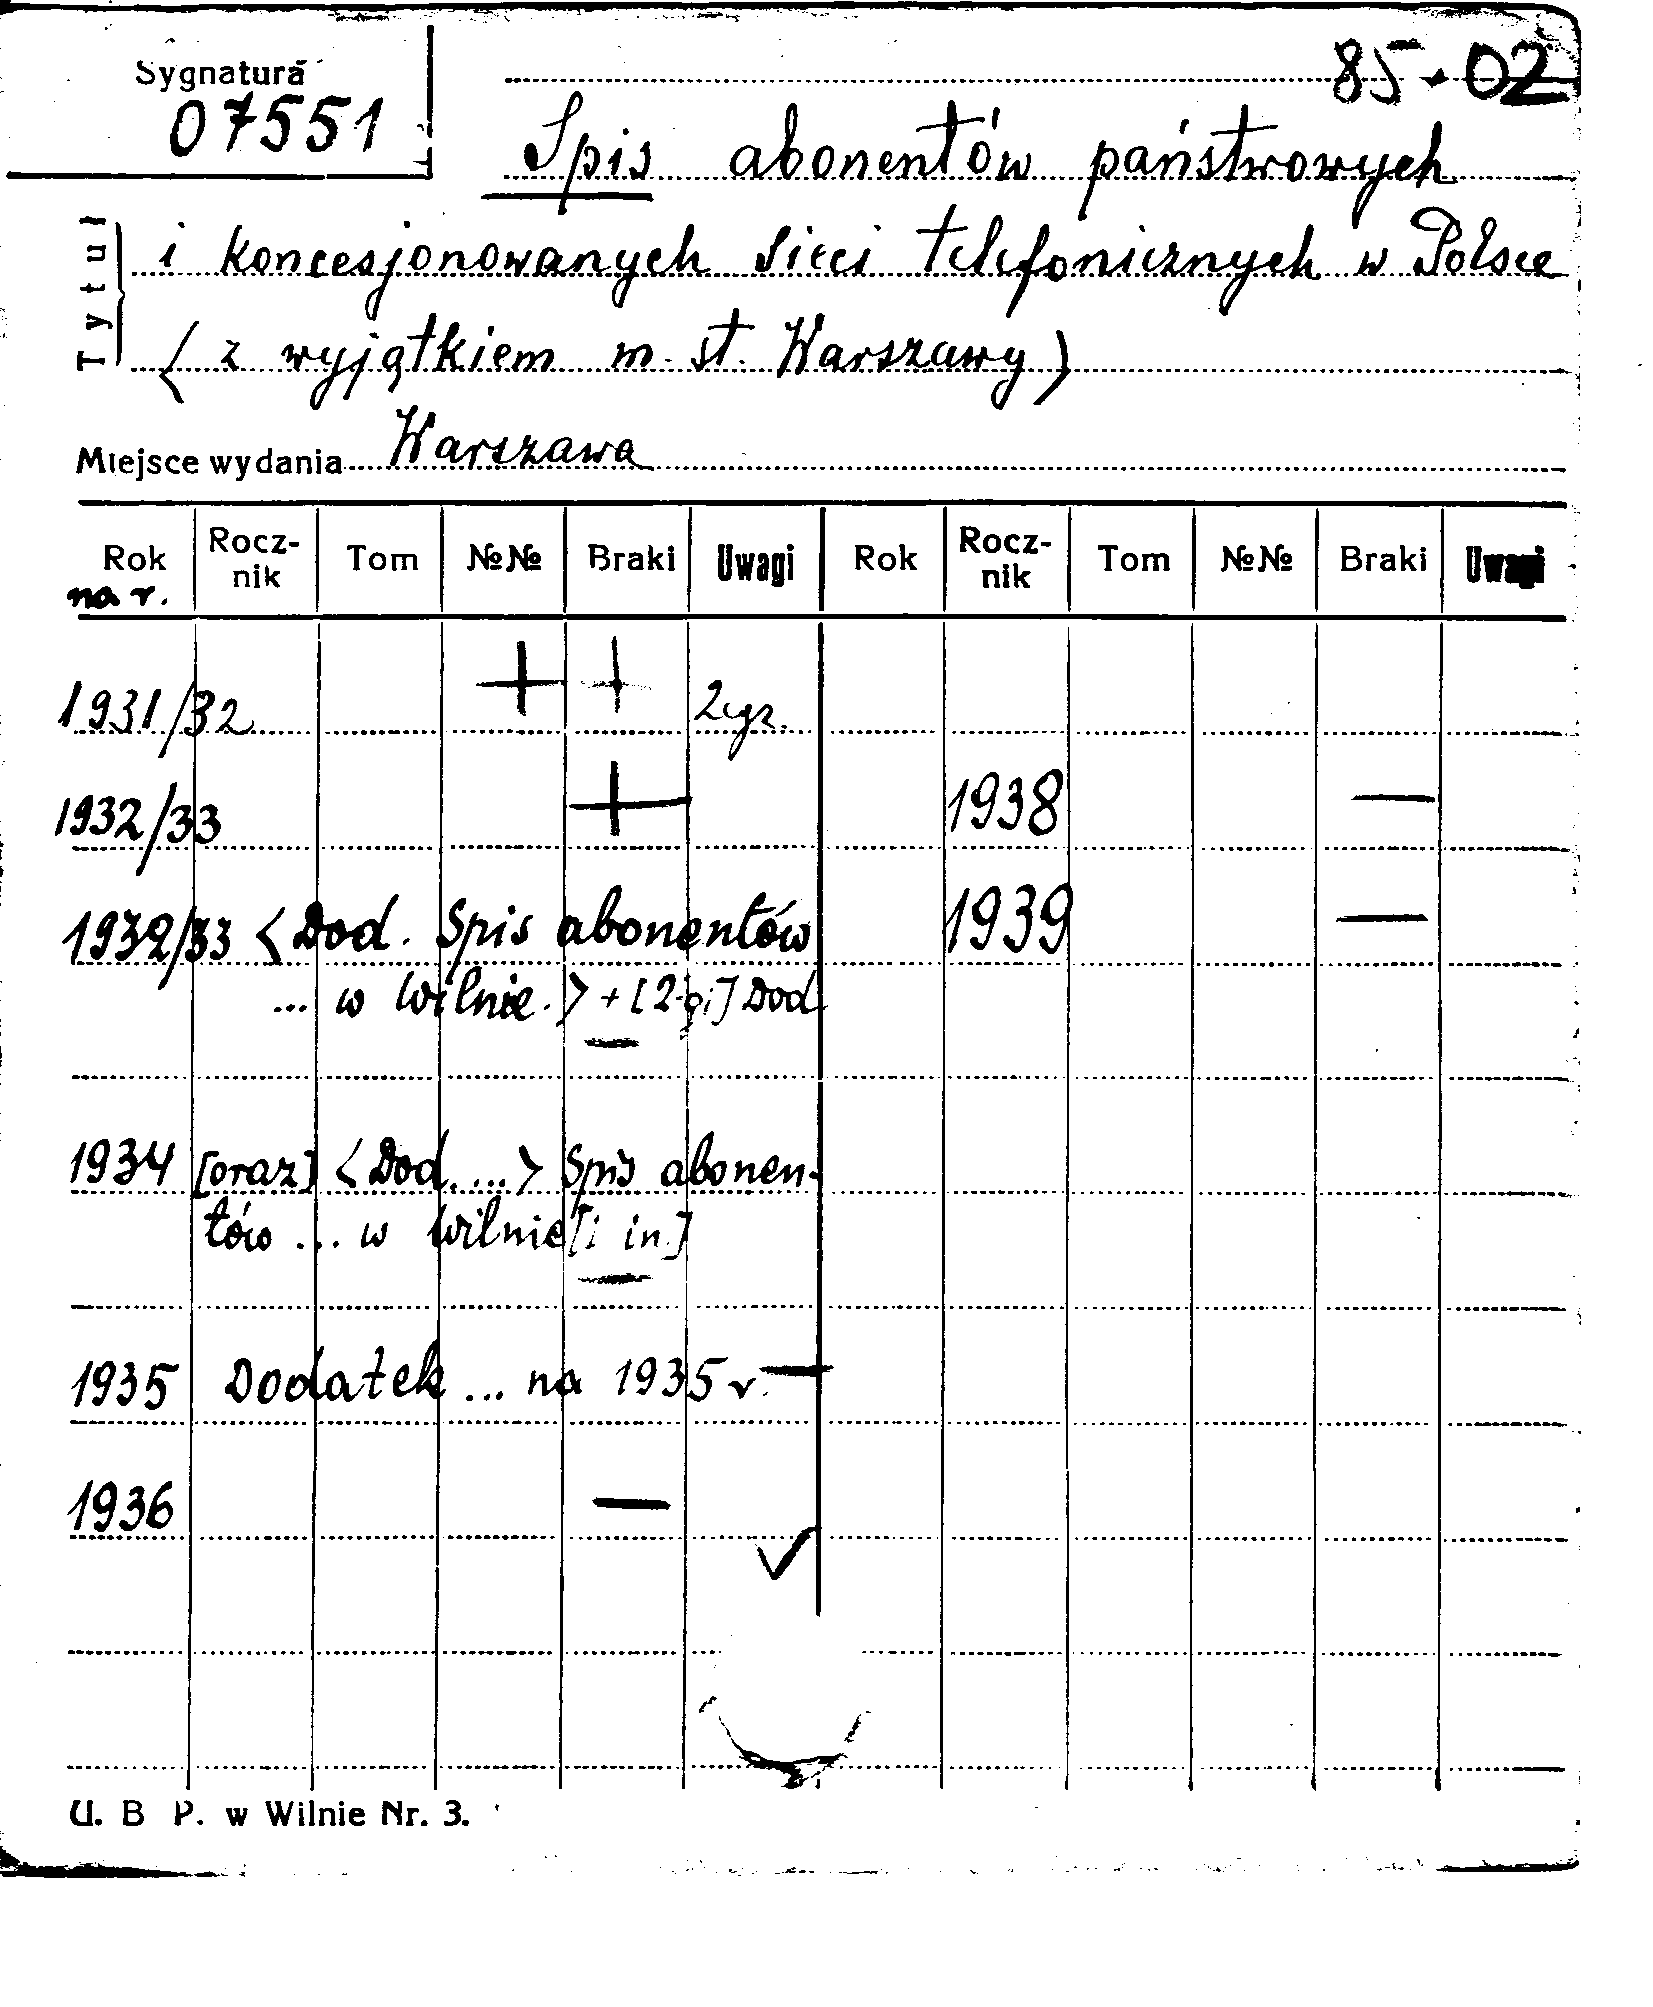 Sygnatura
07551
85.02
Spis abonentów państwowych
Tytuł
i koncesjonowanych sieci telefonicznych w Polsce
( z wyjątkiem m. st. Warszawy )
Miejsce wydania Warszawa
Rok na r. Rocz-nik Tom №№ Braki Uwagi Rok Rocz-nik Tom №№ Braki Uwagi
1931/32 + + 2 egz.
1932/33 + 1938 —
1932/33 < Dod. Spis abonentów 1939 —
... w Wilnie. > + [2-gi] Dod
—
1934 [oraz] < Dod. ... > Spis abonen-
tów ... w Wilnie [i in.]
—
1935 Dodatek ... na 1935 r. —
1936 —
✓
U. B P. w Wilnie Nr. 3.